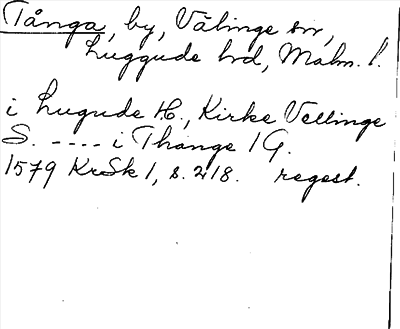 Tånga, by, Välinge sn,
Luggude hd, Malm. l.
i Lugude H., Kirke Vellinge
S. ---- i Thange 1 G.
1579 KrSk 1, s. 218. regest.